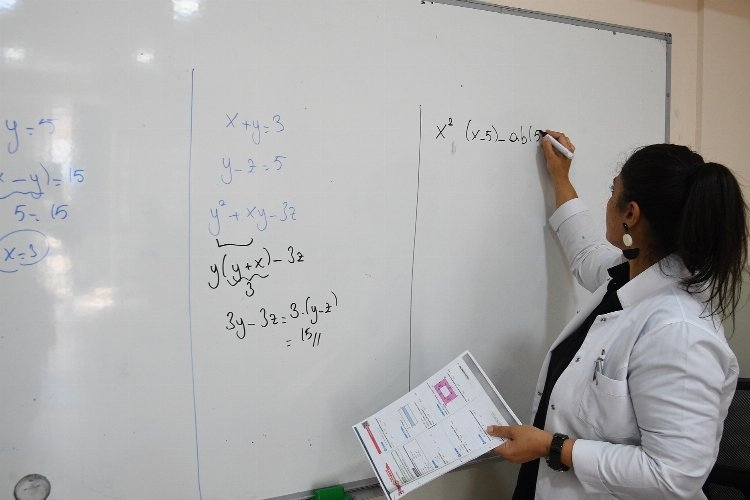 y = 5
x - y) = 15
5 = 15
x = 3
x + y = 3
y - z = 5
y² + xy - 3z
y(y + x) - 3z
3
3y - 3z = 3.(y - z)
= 15//
x² (x - 5) - ab(5